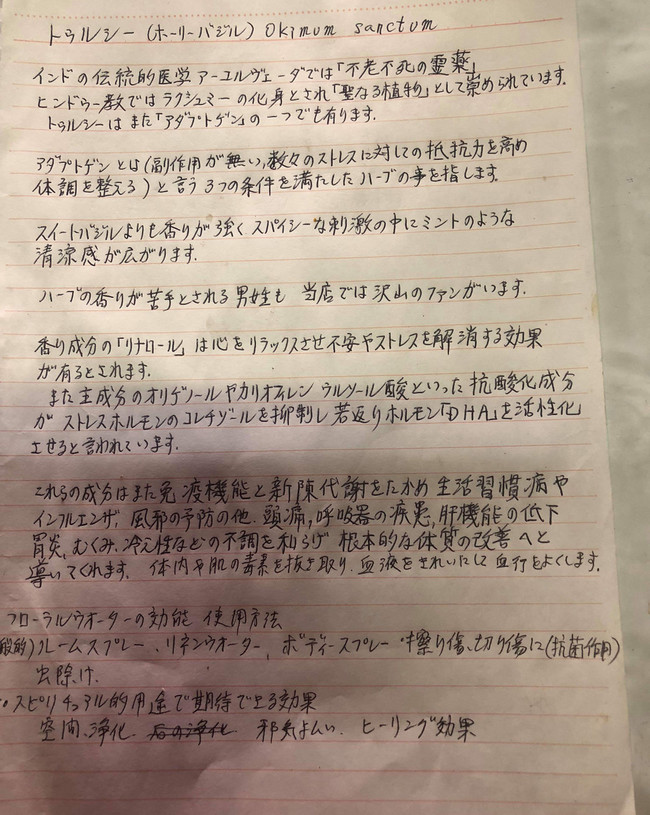 トゥルシー(ホーリーバジル) Okimum sanctum
インドの伝統的医学アーユルヴェーダでは「不老不死の霊薬」
ヒンドゥー教ではラクシュミーの化身とされ「聖なる植物」として崇められています。
トゥルシーはまた「アダプトゲン」の一つでも有ります。
アダプトゲンとは(副作用が無い,数々のストレスに対しての抵抗力を高め
体調を整える)と言う3つの条件を満たしたハーブの事を指します。
スイートバジルよりも香りが強くスパイシーな刺激の中にミントのような
清涼感が広がります.
ハーブの香りが苦手とされる男性も 当店では沢山のファンがいます.
香り成分の「リナロール」は心をリラックスさせ不安やストレスを解消する効果
が有るとされます.
また主成分のオリゲノールやカリオフィレン ウルソール酸といった抗酸化成分
がストレスホルモンのコレチゾールを抑制し若返りホルモン「DHA」を活性化
させると言われています.
これらの成分はまた免疫機能と新陳代謝をたかめ生活習慣病や
インフルエンザ,風邪の予防の他,頭痛,呼吸器の疾患,肝機能の低下
胃炎,むくみ,冷え性などの不調を和らげ 根本的な体質の改善へと
導いてくれます. 体内や肌の毒素を抜き取り,血液をきれいにして血行をよくします.
フローラルウオーターの効能 使用方法
般的)ルームスプレー、リネンウオーター, ボディースプレー・擦り傷、切り傷に(抗菌作用)
虫除け.
・スピリチュアル的用途で期待できる効果
空間、浄化. 石の浄化 邪気よけい. ヒーリング効果